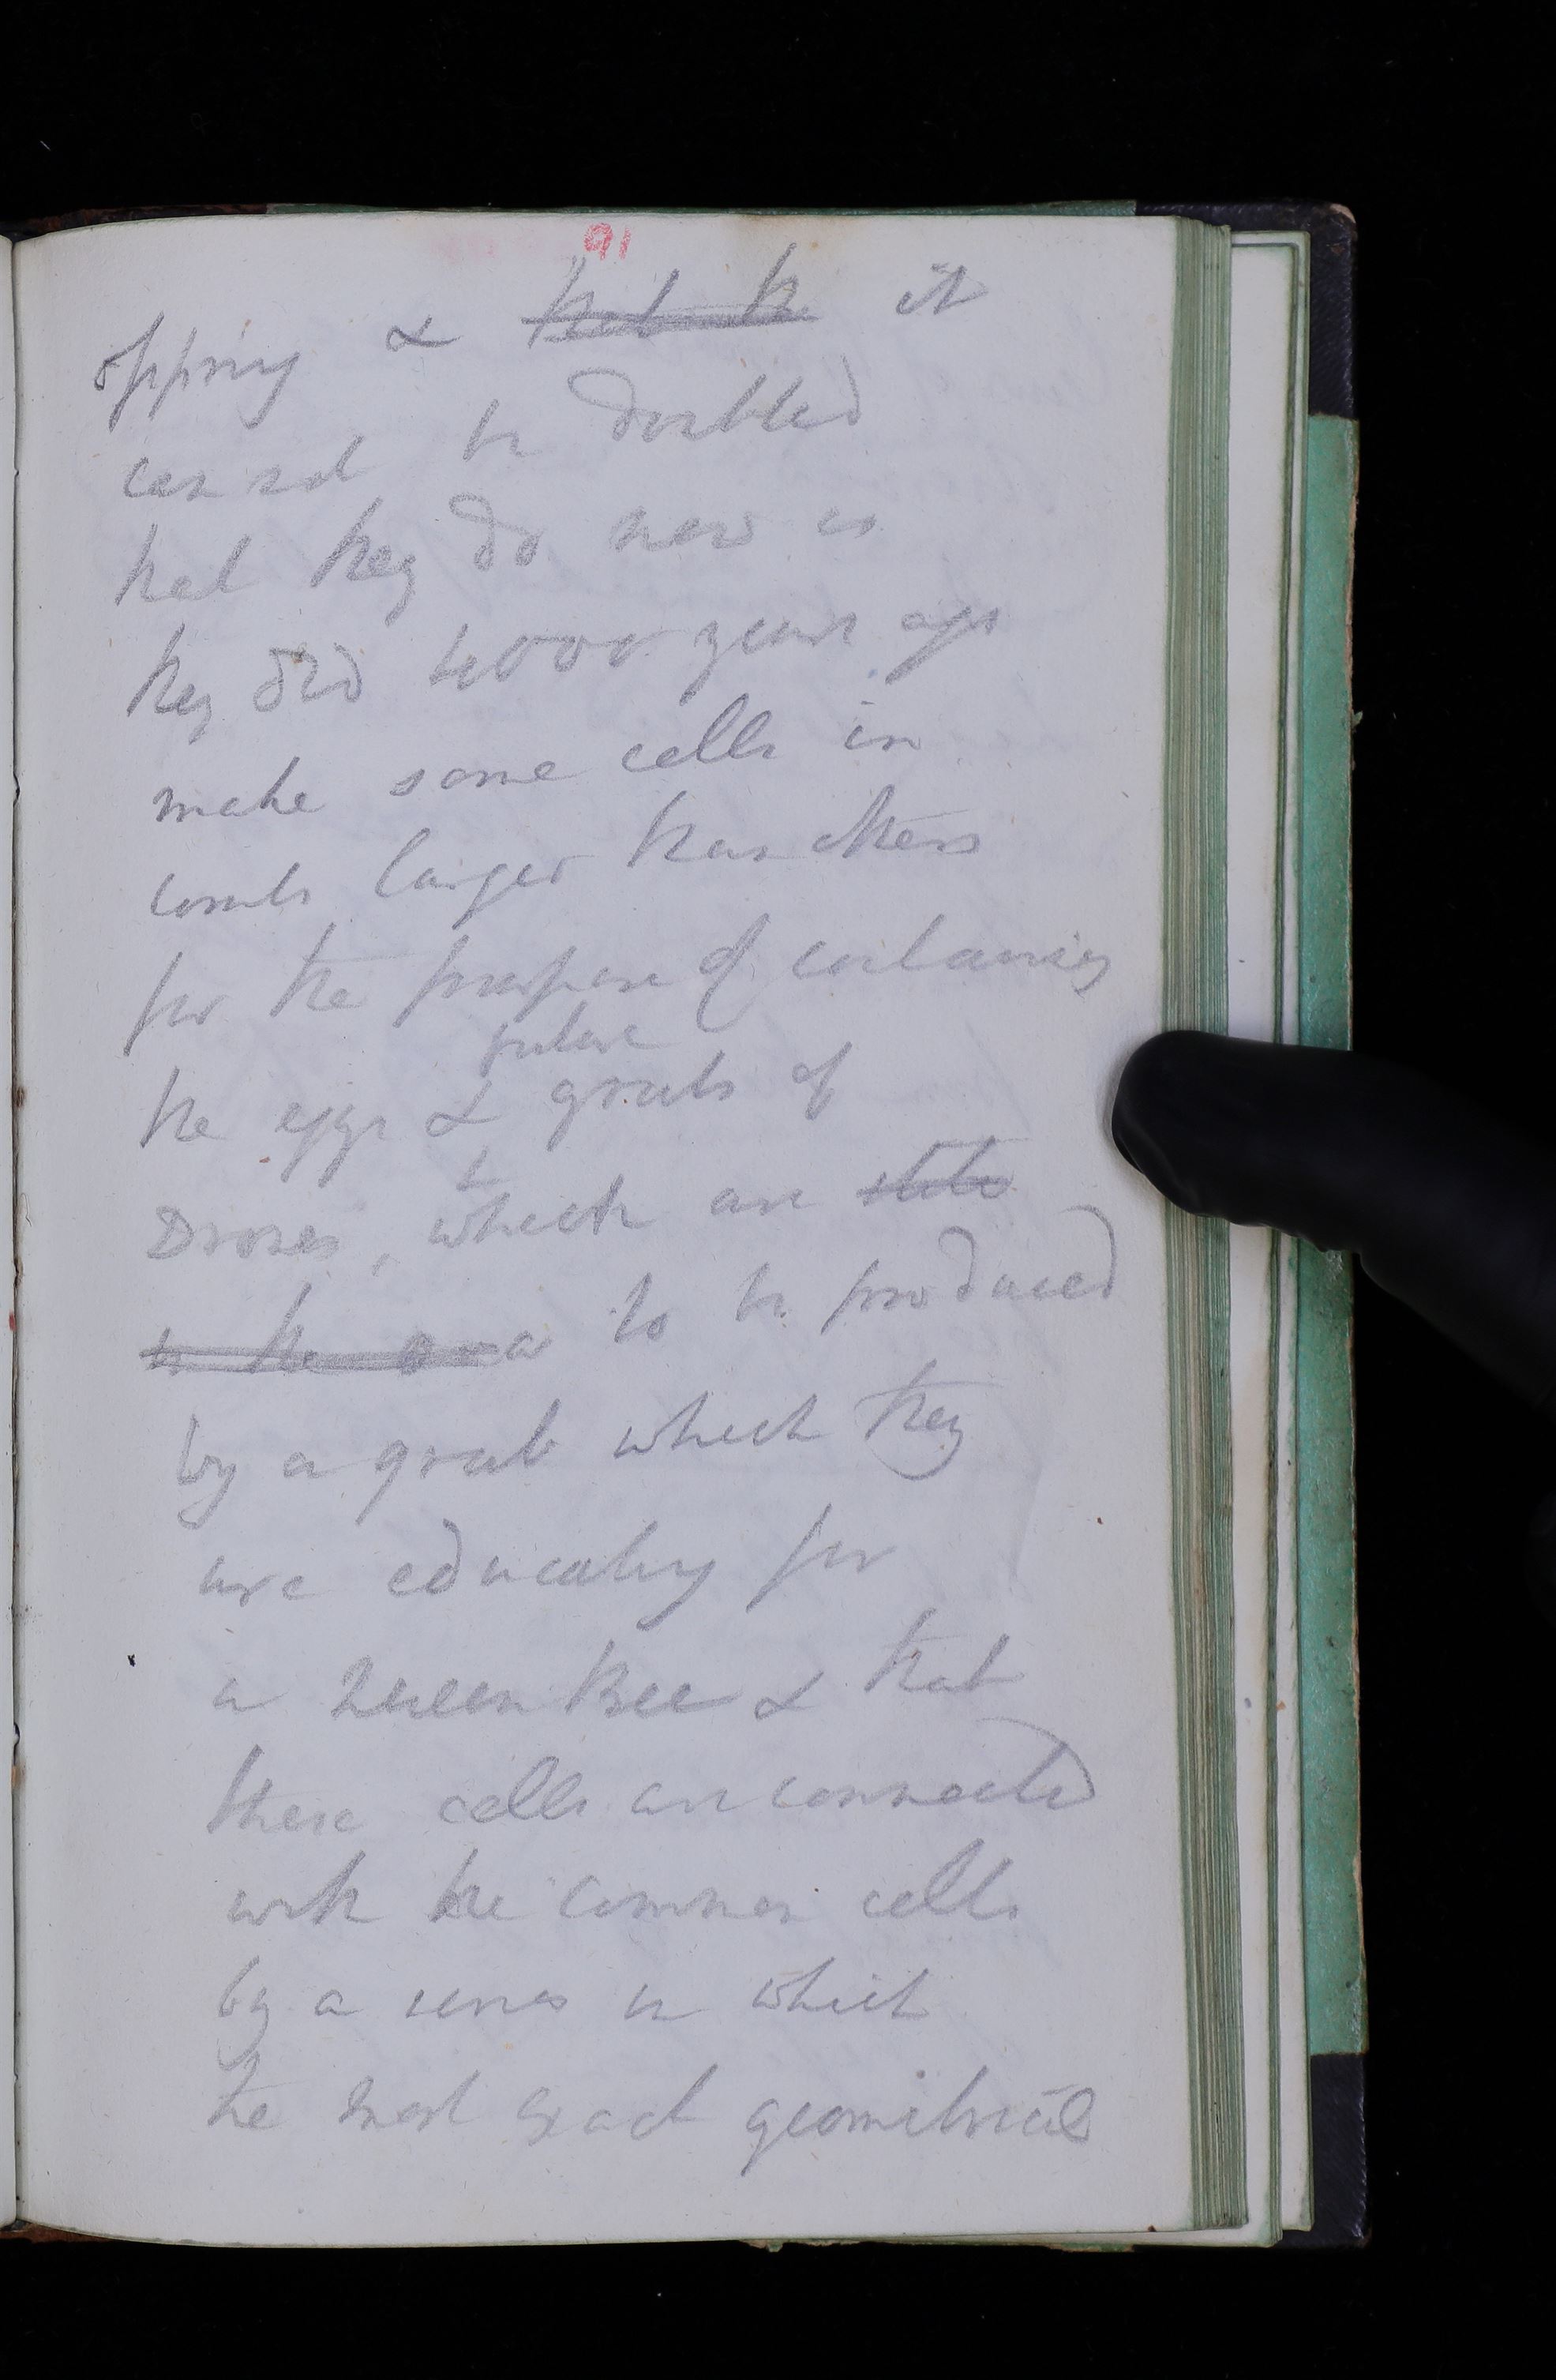 91
offspring & that the it
can not be doubted
that they do now as
they did 4000 years ago
make some cells in
combs larger than others
for the purpose of containing
future
the eggs & grubs of
Drones, which are
to be produced
by a grub which they
are educating for
a Queen Bee & that
these cells are connected
with the common cells
by a series in which
the most exact geometrical